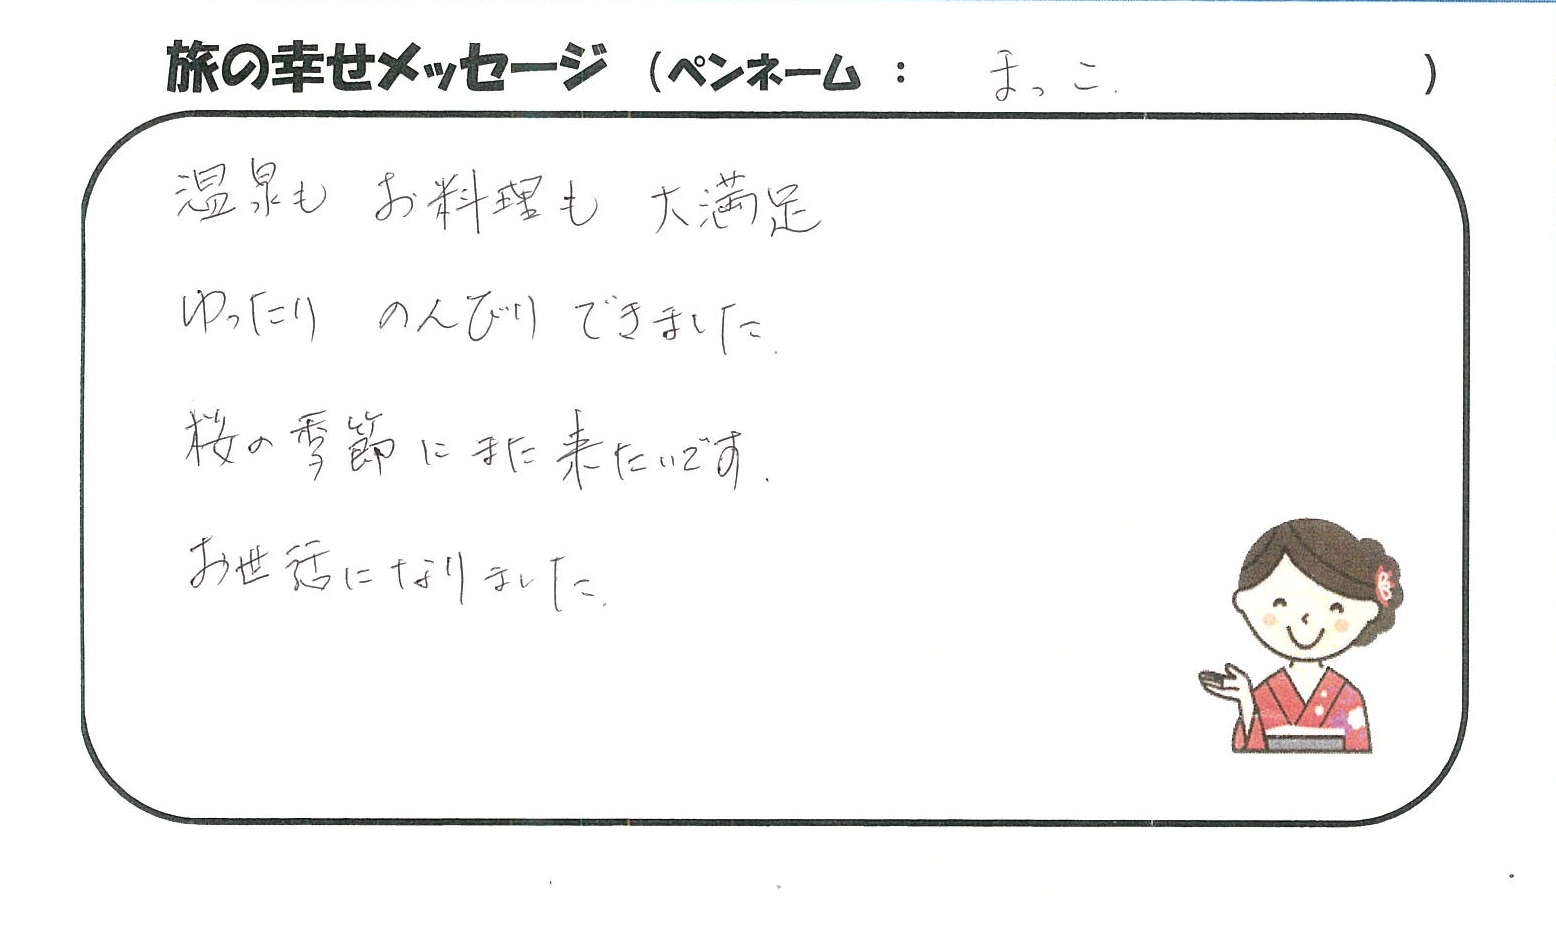 旅の幸せメッセージ （ペンネーム ： まっこ. ）
温泉も お料理も 大満足
ゆったり のんびり できました.
桜の季節に また 来たいです.
お世話になりました.